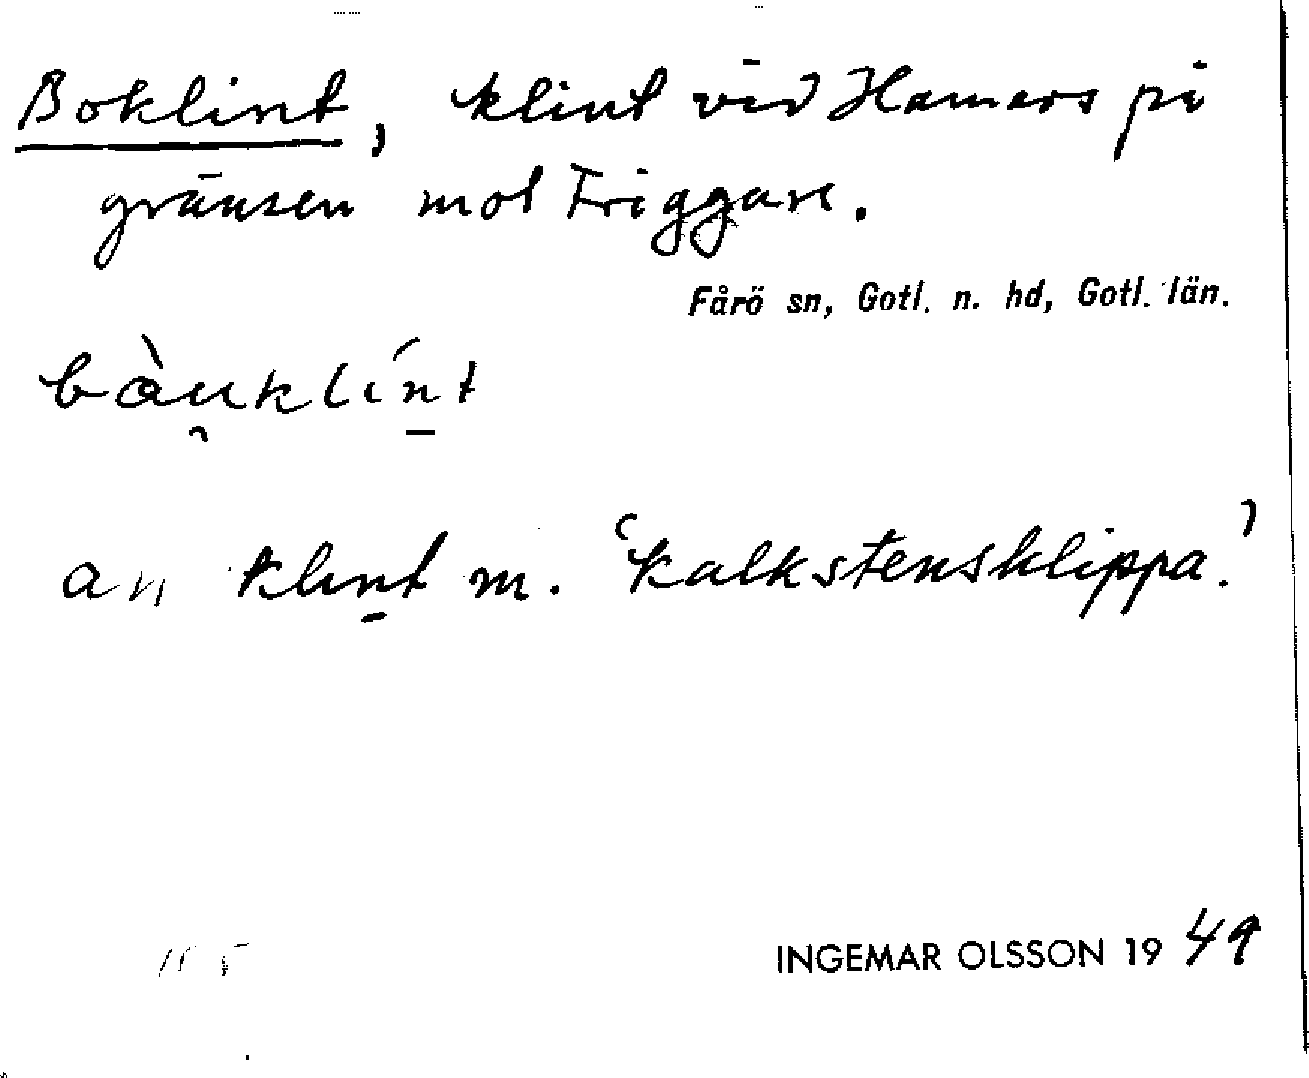 Boklint, klint vid Hammars på
gränsen mot Friggars.
Fårö sn, Gotl. n. hd, Gotl. län.
bàu̯klín̲t
an klin̲t m. 'kalkstensklippa.'
INGEMAR OLSSON 1949